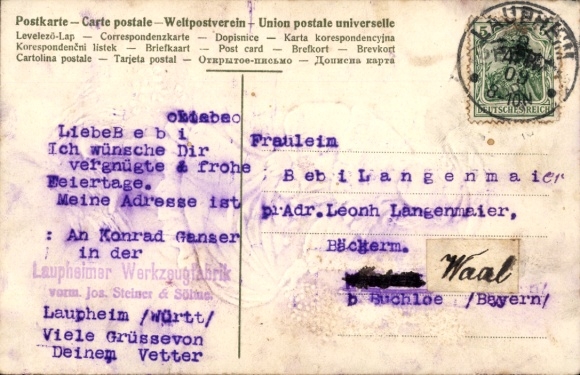 Postkarte — Carte postale — Weltpostverein — Union postale universelle
Levelező-Lap — Correspondenzkarte — Dopisnice — Karta korespondencyjna
Korespondenční lístek — Briefkaart — Post card — Brefkort — Brevkort
Cartolina postale — Tarjeta postal — Открытое-письмо — Дописна карта
LAUPHEIM
09
DEUTSCHES REICH
LiebeB e b i
Ich wünsche Dir
vergnügte & frohe
Feiertage.
Meine Adresse ist
: An Konrad Ganser
in der
Laupheimer Werkzeugfabrik
vorm. Jos. Steiner & Söhne.
Laupheim /Württ/
Viele Grüssevon
Deinem Vetter
Fräuleim
B e b i L a n g e n m a i er
p.Adr.Leonh Langenmaier,
Bäckerm.
Waal
b Buchloe /Bayern/